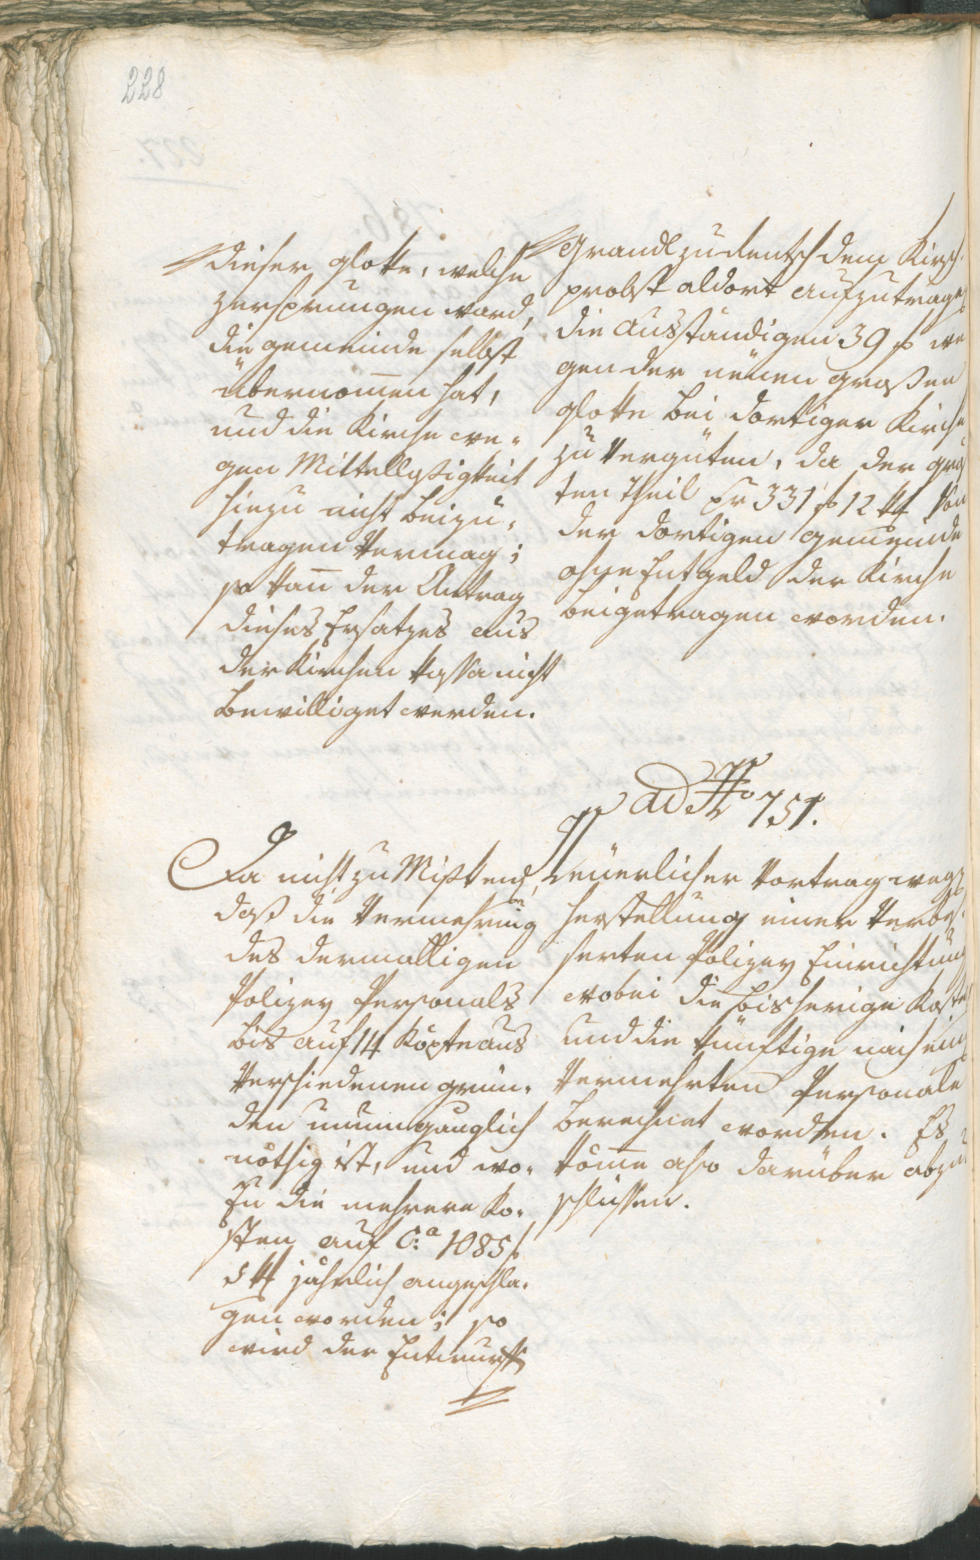 228
dieser Gloke, welche
zersprungen ward,
die Gemeinde selbst
übernomen hat,
und die Kirche we-
gen Mittellosigkeit
hiezu nicht beizu-
tragen vermag;
so kan der Antrag
dieses Ersatzes aus
der Kirchen Kassa nicht
bewilliget werden.
zu deutsch dem Kirch-
probst aldort aufzutrage
die Ausständigen 39 f we
gen der neuen grosen
Gloke bei dortiger Kirche
zu verguten, da der grös
ten Theil pr 331 f 12 x von
der dortigen Gemeinde
ohne Entgeld der Kirche
beigetragen worden.
ad No 751.
Da nicht zu Mißkend,
daß die Vermehrung
des dermalligen
Polizey Personals
bis auf 14 Köpfe aus
verschiedenen grün-
den unumgänglich
nöthig ist, und wo-
zu die mehrere Ko-
sten auf C:a 1085 f
54 x jährlich angeschla-
gen worden; so
wird der Entwurf
Neuerlicher Vortrag weg
Herstellung einer verbes-
serten Polizey Einrichtung
wobei die bisherige Koste
und die künftige nach ein
vermehrten Personale
berechnet worden. Es
köme also darüber abzu
schlüssen.